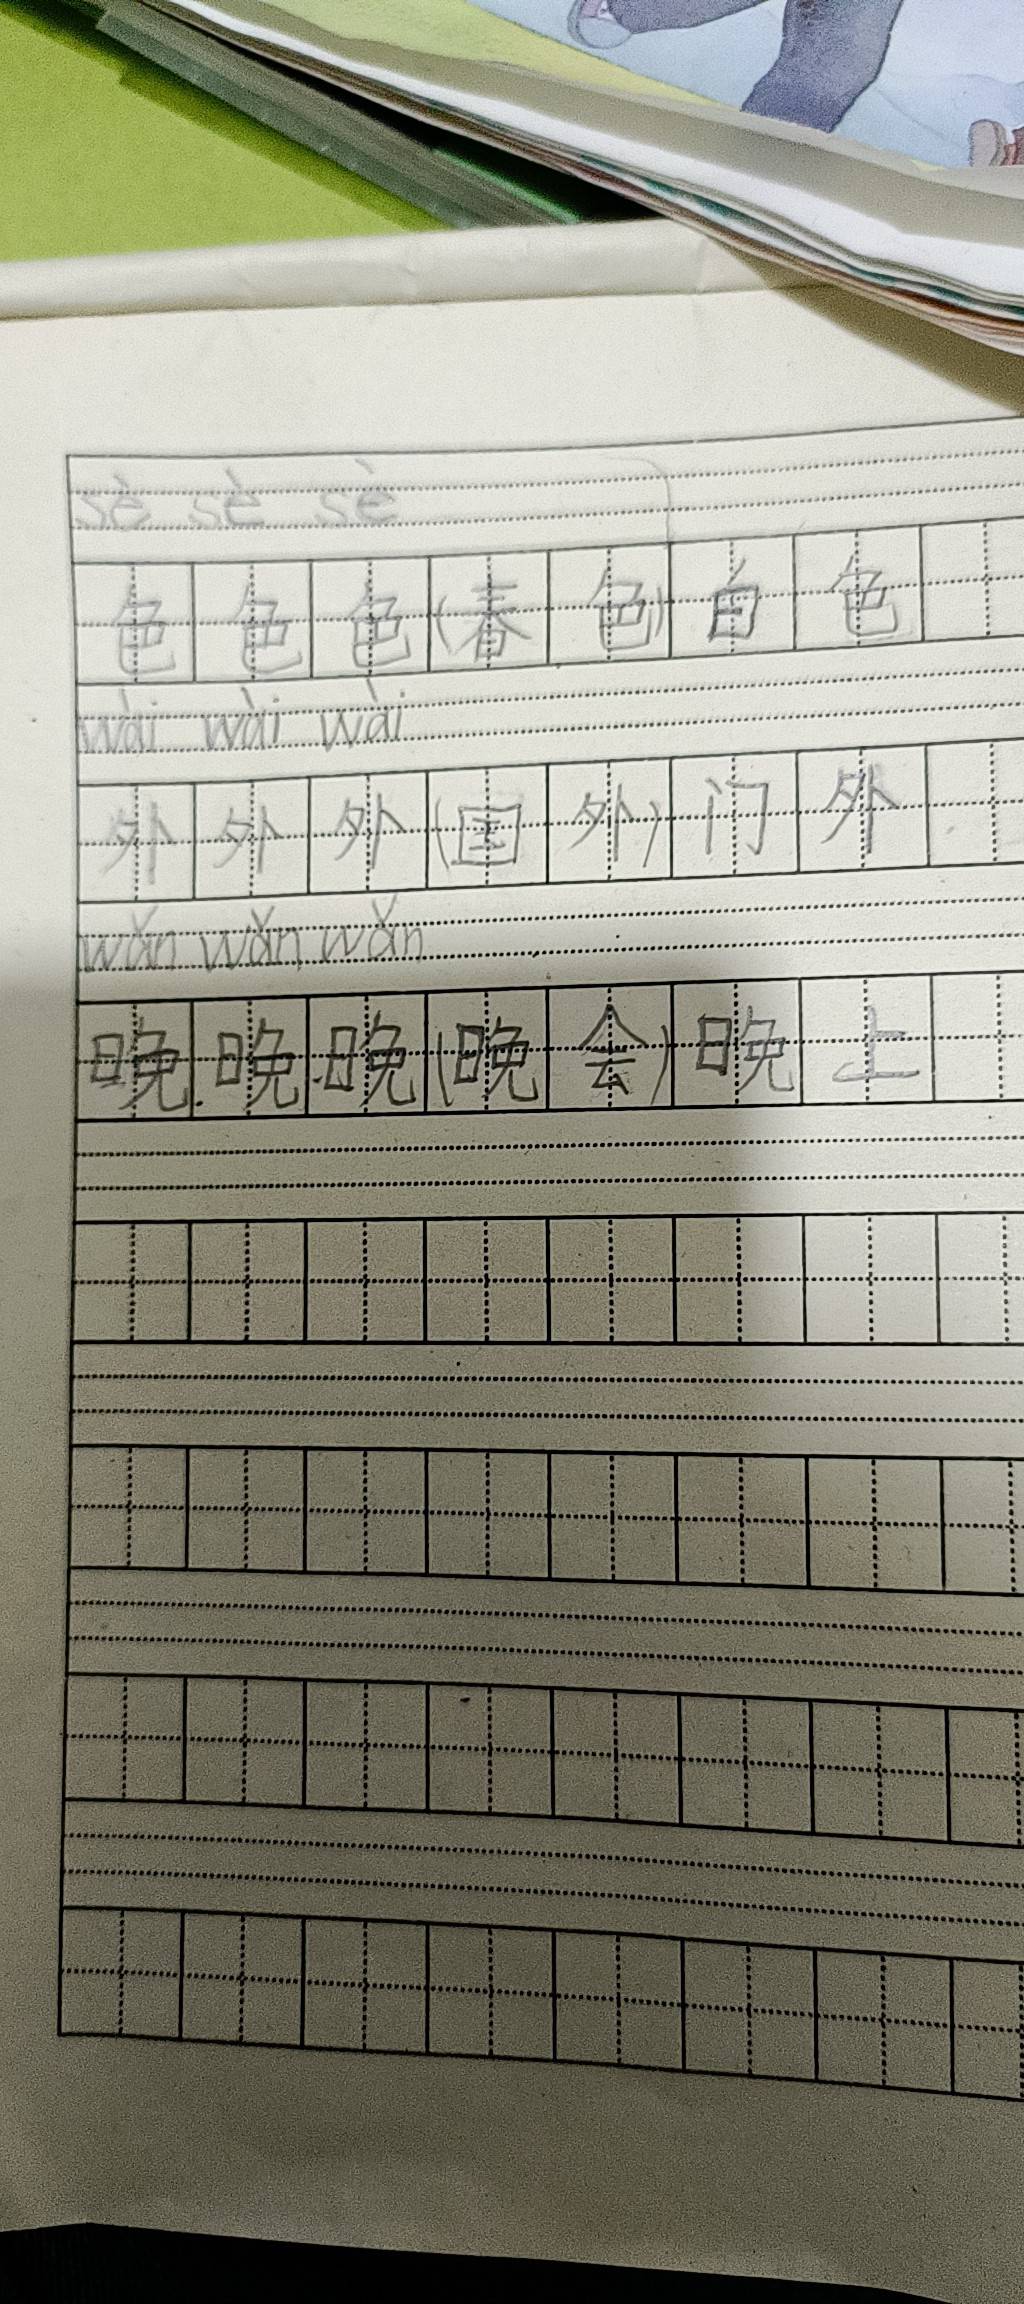 sè sè sè
色 色 色 (春 色) 白 色
wài wài wài
外 外 外 (国 外) 门 外
wǎn wǎn wǎn
晚 晚 晚 (晚 会) 晚 上